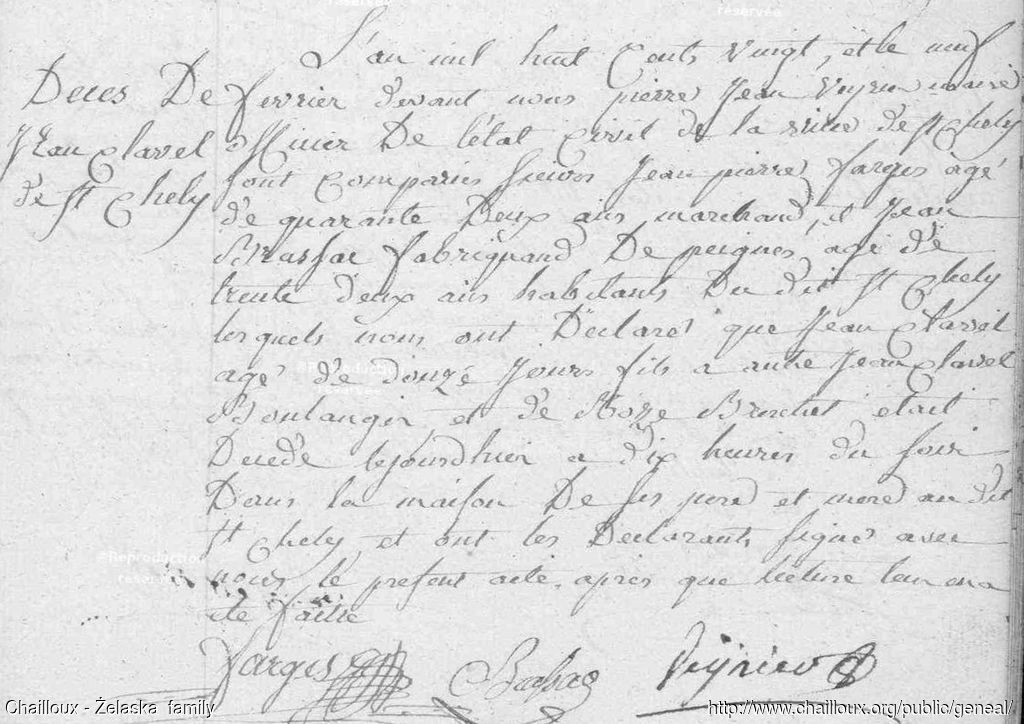 Deces De
Jean Clavel
de St Chely
L'an mil huit Cents vingt, et le neuf
fevrier devant nous pierre Jean Veyrier maire
officier De l'état Civil de la ville de St Chely
sont Comparus sieurs Jean pierre farges agé
de quarante Deux ans, marchand, et Jean
Brassac fabriquand De peignes, agé de
trente deux ans habitants Du dit St Chely
lesquels nous ont Declaré que Jean Clavel
agé de douze Jours fils a autre Jean Clavel
Boulanger et de Roze Brochet etait
Decedé le jourdhier a dix heures du soir
Dans la maison De ses pere et mere au dit
St Chely, et ont les Declarants signés avec
nous le present acte, apres que lecture leur en a
ete faitte
Farges Veyrier
Reproduction
réservée
Reproduction
réservée
Chailloux - Żelaska family
http://www.chailloux.org/public/geneal/